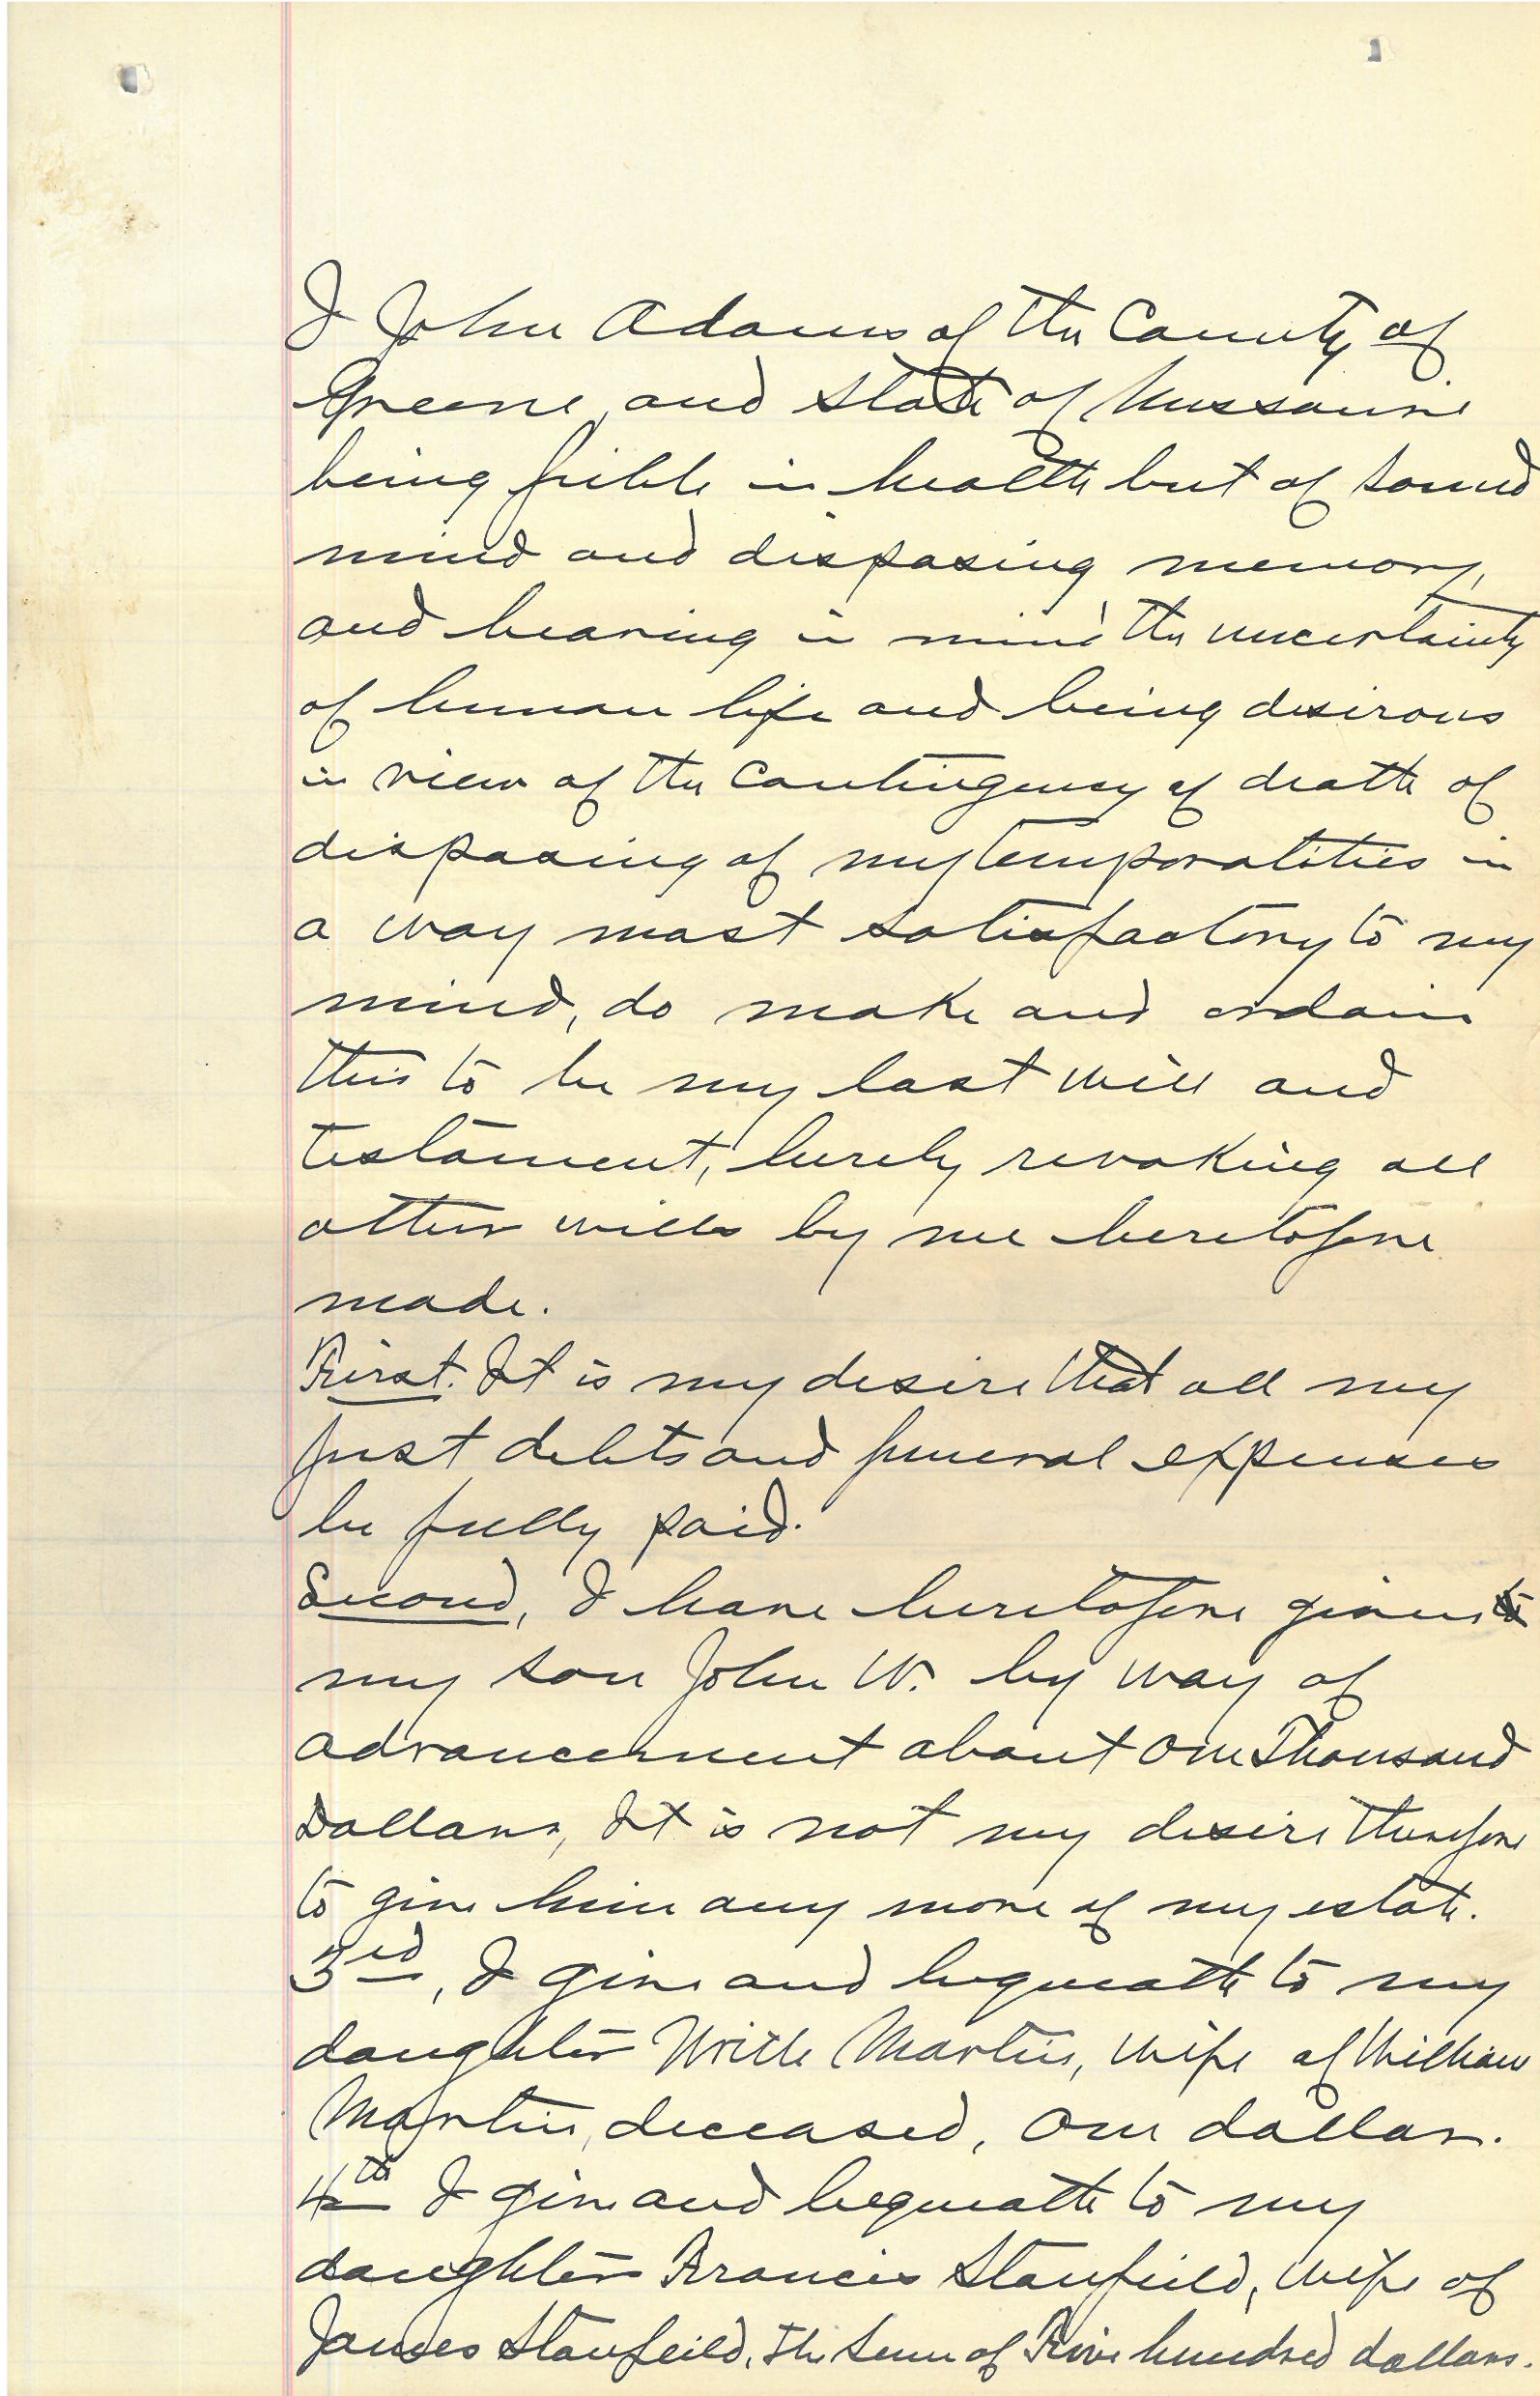 I John Adams of the County of
Greene, and State of Missouri
being feible in health but of sound
mind and disposing memory,
and bearing in mind the uncertainty
of human life and being desirous
in view of the contingency of death of
disposing of my temporalities in
a way most satisfactory to my
mind, do make and ordain
this to be my last will and
testament, hereby revoking all
other wills by me heretofore
made.
First. It is my desire that all my
just debts and funeral expenses
be fully paid.
Second, I have heretofore given to
my son John W. by way of
advancement about One Thousand
Dollars, It is not my desire therefore
to give him any more of my estate.
3rd, I give and bequeath to my
daughter Martin, wife of William
Martin, deceased, One dollar.
4th I give and bequeath to my
daughter Francis Stanfield, wife of
James Stanfeild, the sum of Five hundred dollars.